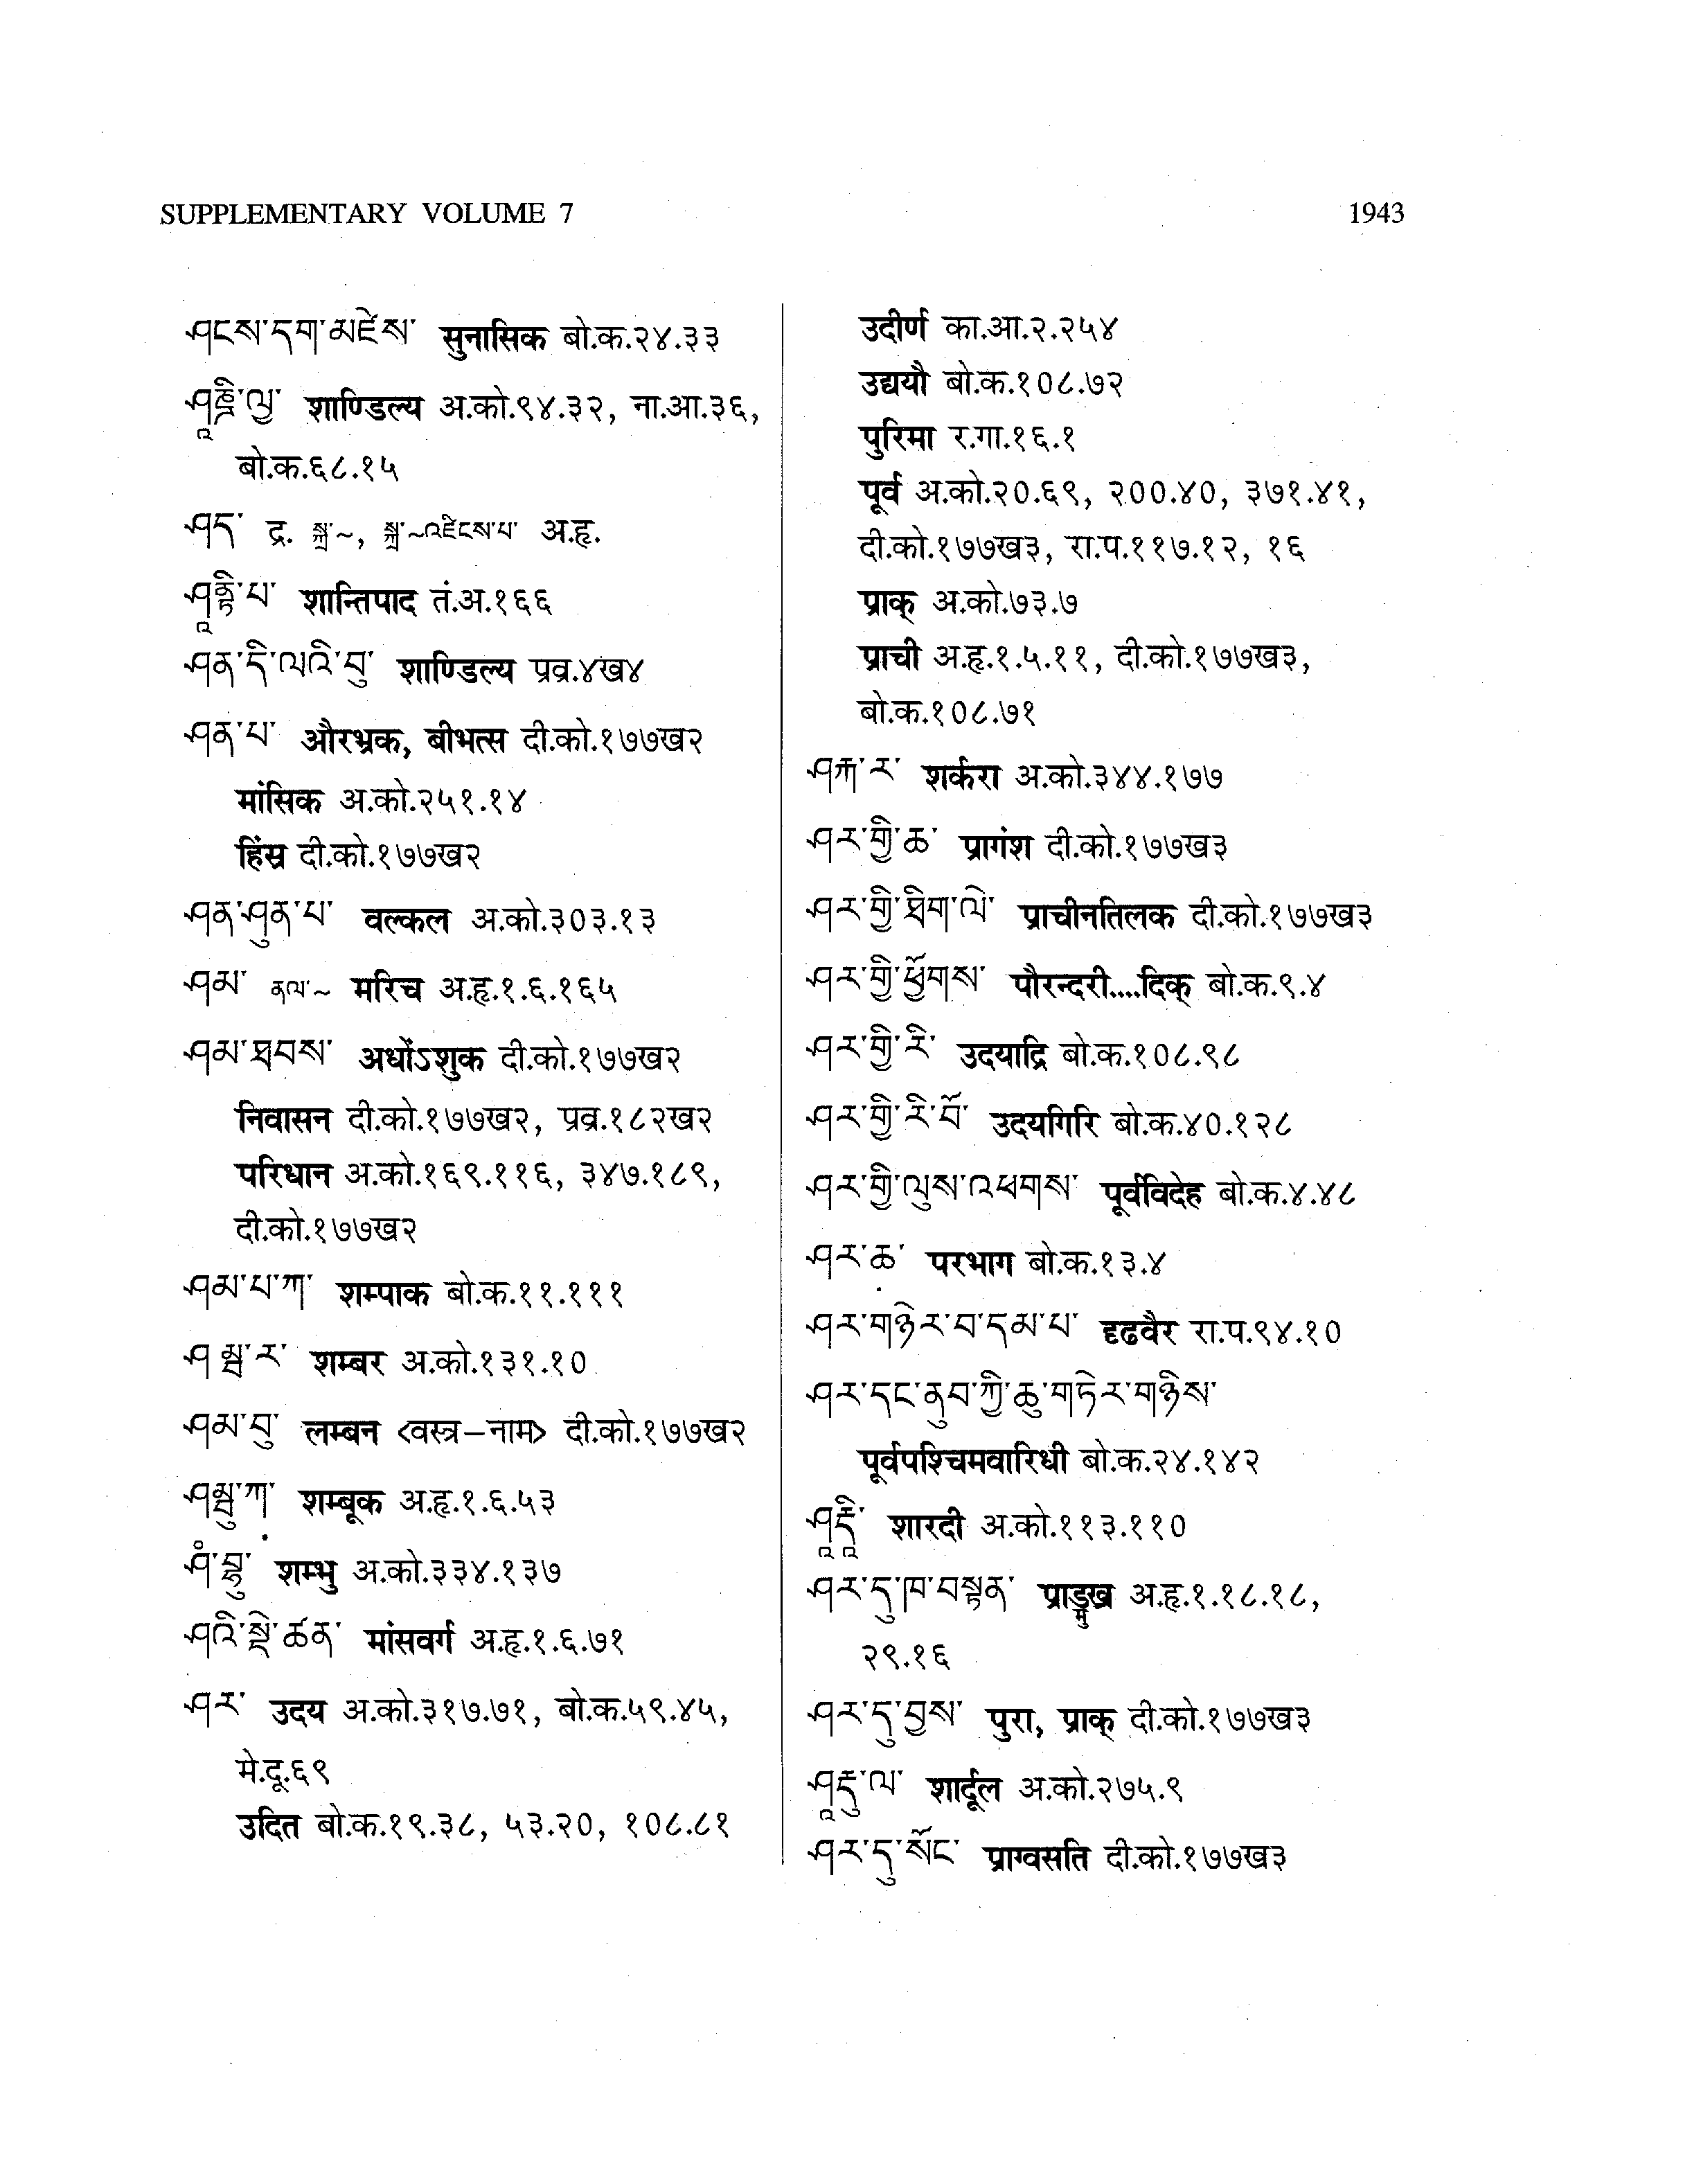 SUPPLEMENTARY VOLUME 7
1943
ཤངས་དག་མཛེས་ सुनासिक बो.क.२४.३३
ཤཱཎྜི་ལྱ་ शाण्डिल्य अ.को.९४.३२, ना.आ.३६,
बो.क.६८.१५
ཤད་ द्र. སྐྲ་~, སྐྲ་~འཛིངས་པ་ अ.हृ.
ཤཱནྟི་པ་ शान्तिपाद तं.अ.१६६
ཤན་དི་ལའི་བུ་ शाण्डिल्य प्रव्र.४ख४
ཤན་པ་ औरभ्रक, बीभत्स दी.को.१७७ख२
मांसिक अ.को.२५१.१४
हिंस्र दी.को.१७७ख२
ཤན་ཤུན་པ་ वल्कल अ.को.३०३.१३
ཤམ་ ནལ་~ मरिच अ.हृ.१.६.१६५
ཤམ་ཐབས་ अधोंऽशुक दी.को.१७७ख२
निवासन दी.को.१७७ख२, प्रव्र.१८२ख२
परिधान अ.को.१६९.११६, ३४७.१८९,
दी.को.१७७ख२
ཤམ་པ་ཀ་ शम्पाक बो.क.११.१११
ཤ མྦ་ར་ शम्बर अ.को.१३१.१०
ཤམ་བུ་ लम्बन <वस्त्र–नाम> दी.को.१७७ख२
ཤམྦུ་ཀ་ शम्बूक अ.हृ.१.६.५३
ཤཾ་བྷུ་ शम्भु अ.को.३३४.१३७
ཤའི་སྡེ་ཚན་ मांसवर्ग अ.हृ.१.६.७१
ཤར་ उदय अ.को.३१७.७१, बो.क.५९.४५,
मे.दू.६९
उदित बो.क.१९.३८, ५३.२०, १०८.८१
उदीर्ण का.आ.२.२५४
उद्ययौ बो.क.१०८.७२
पुरिमा र.गा.१६.१
पूर्व अ.को.२०.६९, २००.४०, ३७१.४१,
दी.को.१७७ख३, रा.प.११७.१२, १६
प्राक् अ.को.७३.७
प्राची अ.हृ.१.५.११, दी.को.१७७ख३,
बो.क.१०८.७१
ཤརྐ་ར་ शर्करा अ.को.३४४.१७७
ཤར་གྱི་ཆ་ प्रागंश दी.को.१७७ख३
ཤར་གྱི་ཐིག་ལེ་ प्राचीनतिलक दी.को.१७७ख३
ཤར་གྱི་ཕྱོགས་ पौरन्दरी....दिक् बो.क.९.४
ཤར་གྱི་རི་ उदयाद्रि बो.क.१०८.९८
ཤར་གྱི་རི་བོ་ उदयगिरि बो.क.४०.१२८
ཤར་གྱི་ལུས་འཕགས་ पूर्वविदेह बो.क.४.४८
ཤར་ཆ་ परभाग बो.क.१३.४
ཤར་གཉེར་བ་དམ་པ་ दृढवैर रा.प.९४.१०
ཤར་དང་ནུབ་ཀྱི་ཆུ་གཏེར་གཉིས་
पूर्वपश्चिमवारिधी बो.क.२४.१४२
ཤཱརྡཱི་ शारदी अ.को.११३.११०
ཤར་དུ་ཁ་བསྟན་ प्राङ्मुख अ.हृ.१.१८.१८,
२९.१६
ཤར་དུ་བྱས་ पुरा, प्राक् दी.को.१७७ख३
ཤཱརྡུ་ལ་ शार्दूल अ.को.२७५.९
ཤར་དུ་སོང་ प्राग्वसति दी.को.१७७ख३